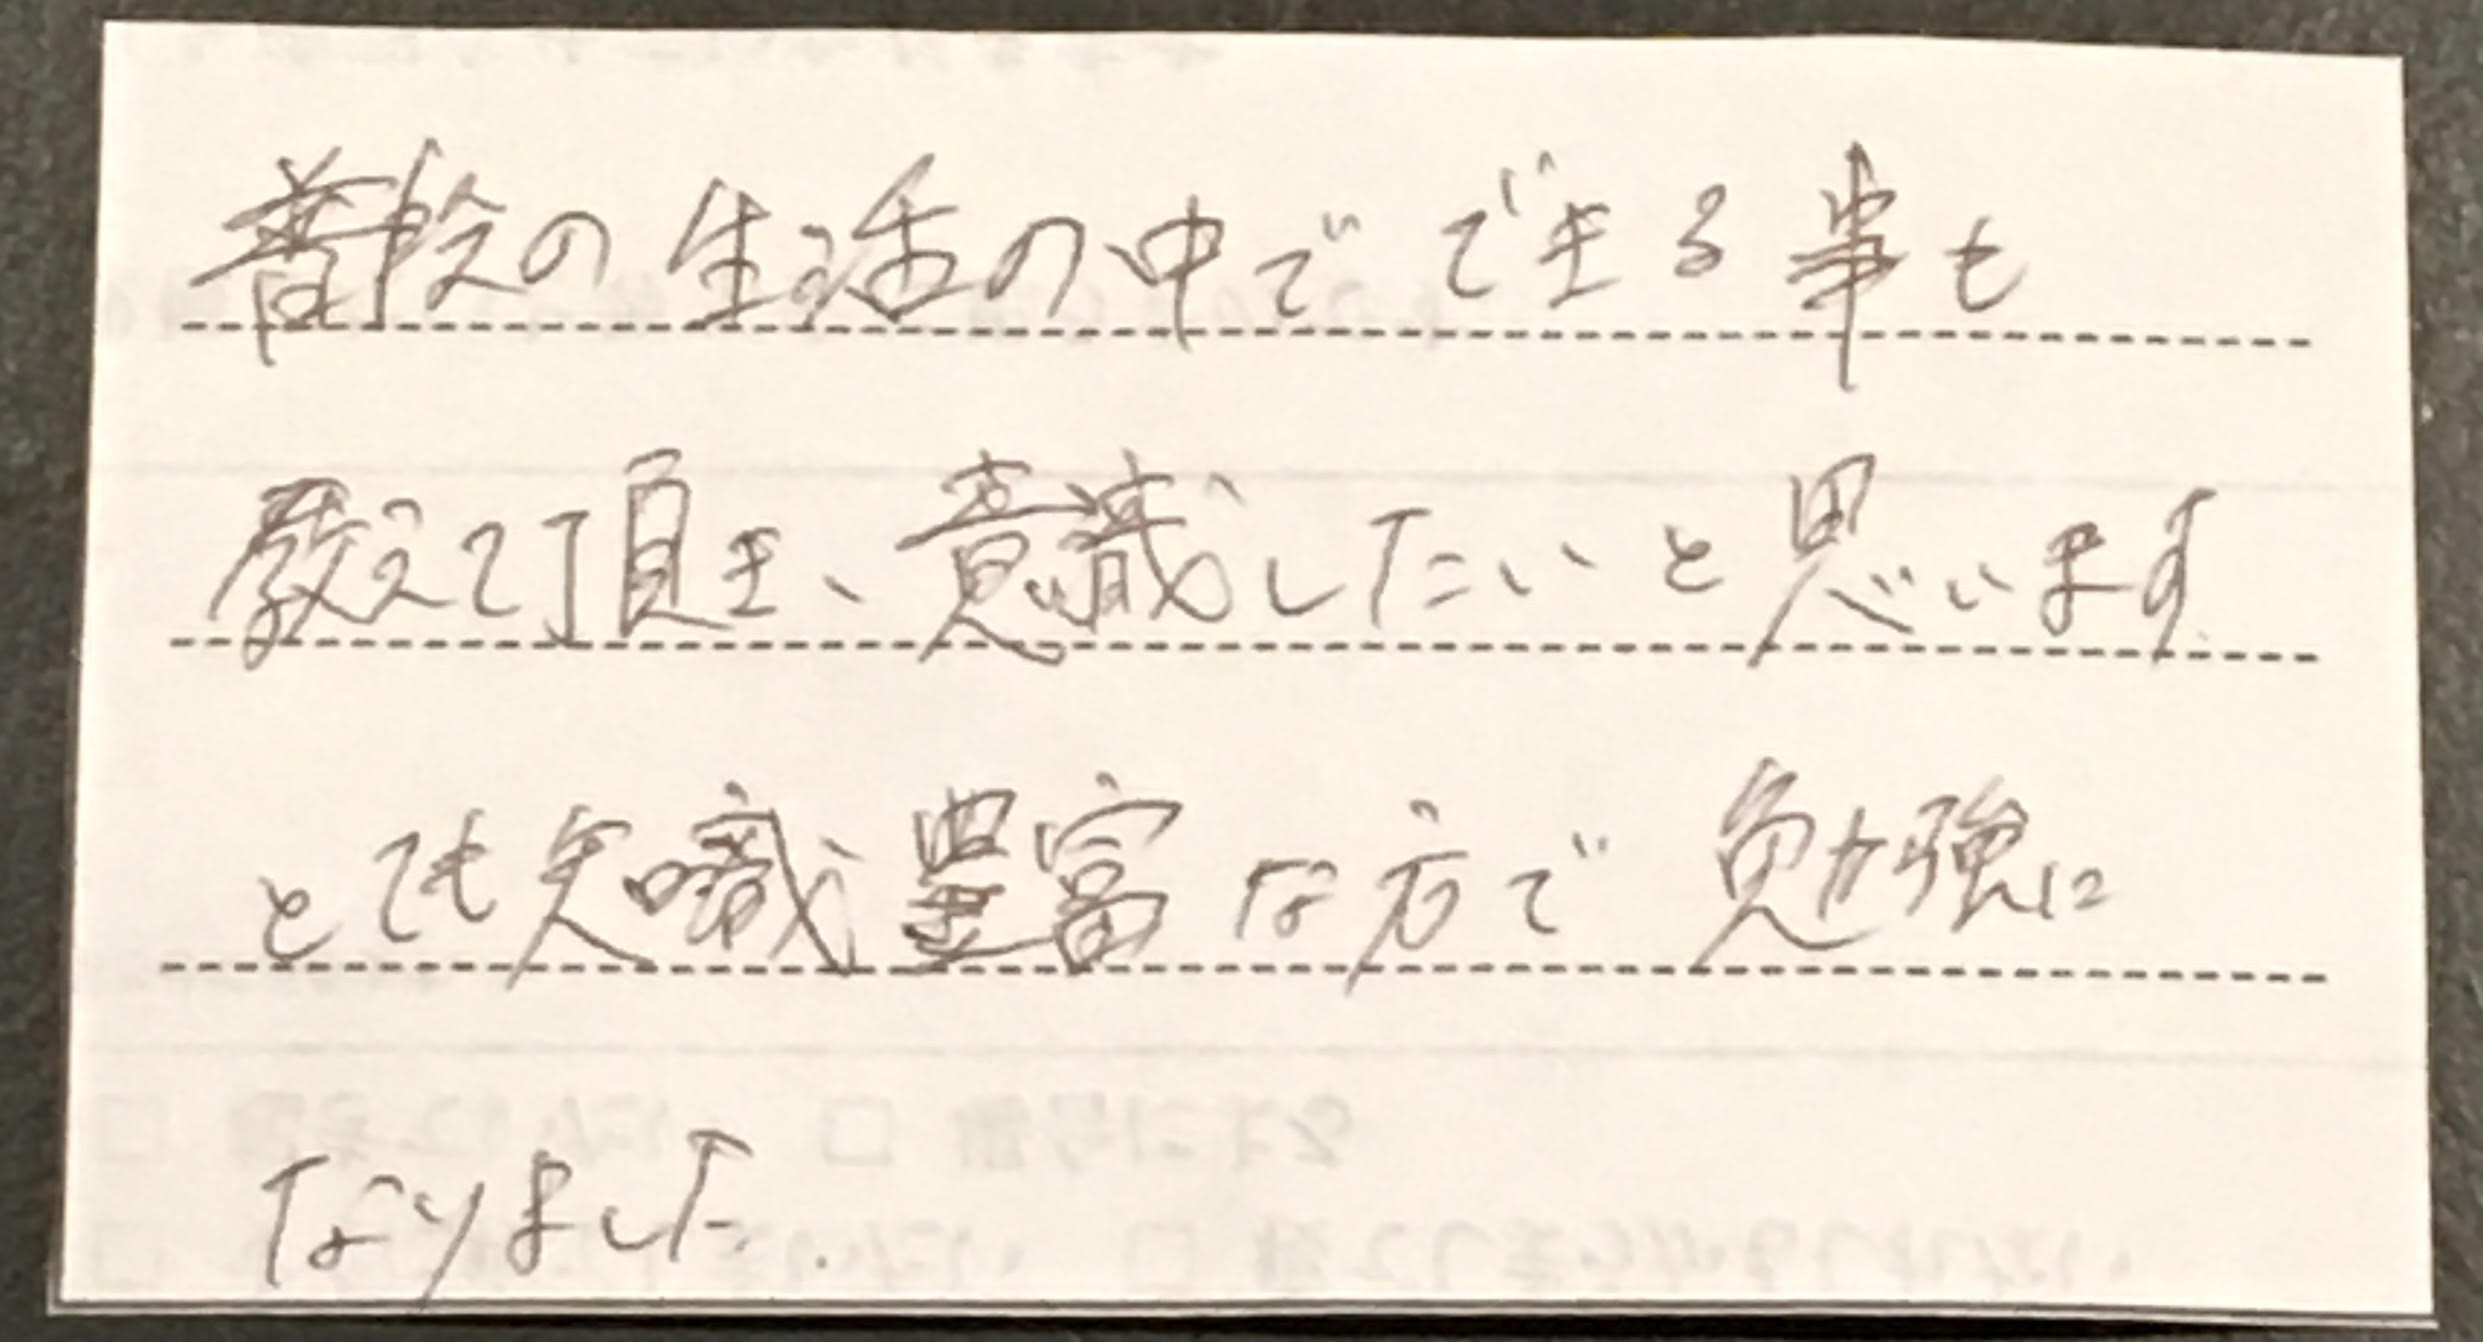 普段の生活の中でできる事も
教えて頂き、意識したいと思います
とても知識豊富な方で勉強に
なりました